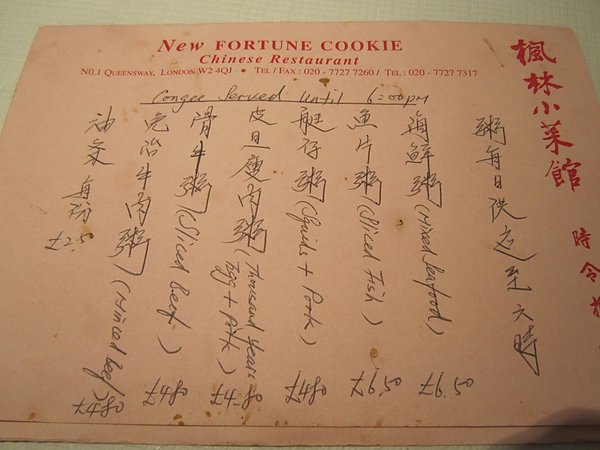 New FORTUNE COOKIE
Chinese Restaurant
NO.1 QUEENSWAY, LONDON W2 4QJ • TEL / FAX : 020 - 7727 7260 / TEL : 020 - 7727 7317
楓林小菜館
時令
Congee Served Until 6:00pm
粥每日供应至六時
海鮮粥 (Mixed Seafood) £6.50
魚片粥 (Sliced Fish) £6.50
艇仔粥 (Squids + Pork) £4.80
皮旦瘦肉粥 (Thousand Years Egg + Pork) £4.80
滑牛粥 (Sliced Beef) £4.80
免治牛肉粥 (Minced Beef) £4.80
油炙鬼 £2.50